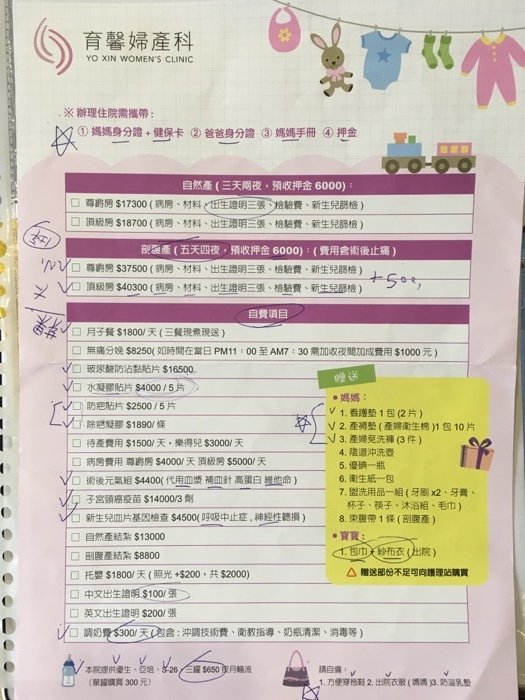 育馨婦產科
YO XIN WOMEN'S CLINIC
※ 辦理住院需攜帶:
① 媽媽身分證 + 健保卡 ② 爸爸身分證 ③ 媽媽手冊 ④ 押金
自然產 ( 三天兩夜，預收押金 6000) :
□ 尊爵房 $17300 ( 病房、材料、出生證明三張、檢驗費、新生兒篩檢 )
□ 頂級房 $18700 ( 病房、材料、出生證明三張、檢驗費、新生兒篩檢 )
剖腹產 ( 五天四夜，預收押金 6000) : ( 費用含術後止痛 )
□ 尊爵房 $37500 ( 病房、材料、出生證明三張、檢驗費、新生兒篩檢 )
□ 頂級房 $40300 ( 病房、材料、出生證明三張、檢驗費、新生兒篩檢 )
+500
自費項目
□ 月子餐 $1800/ 天 ( 三餐現煮現送 )
□ 無痛分娩 $8250( 如時間在當日 PM11：00 至 AM7：30 需加收夜間加成費用 $1000 元 )
□ 玻尿酸防沾黏貼片 $16500
□ 水凝膠貼片 $4000 / 5 片
□ 防疤貼片 $2500 / 5 片
□ 除疤凝膠 $1890/ 條
□ 待產費用 $1500/ 天，樂得兒 $3000/ 天
□ 病房費用 尊爵房 $4000/ 天 頂級房 $5000/ 天
□ 術後元氣組 $4400( 代用血漿 補血針 高蛋白 維他命 )
□ 子宮頸癌疫苗 $14000/3 劑
□ 新生兒血片基因檢查 $4500( 呼吸中止症 , 神經性聽損 )
□ 自然產結紮 $13000
□ 剖腹產結紮 $8800
□ 托嬰 $1800/ 天 ( 照光 +$200，共 $2000)
□ 中文出生證明 $100/ 張
□ 英文出生證明 $200/ 張
□ 調奶費 $300/ 天 ( 包含 : 沖調技術費、衛教指導、奶瓶清潔、消毒等 )
贈送
● 媽媽：
1. 看護墊 1 包 (2 片 )
2. 產褥墊 ( 產婦衛生棉 )1 包 10 片
3. 產婦免洗褲 (3 件 )
4. 陰道沖洗壺
5. 優碘一瓶
6. 衛生紙一包
7. 盥洗用品一組 ( 牙刷 x2、牙膏、
杯子、筷子、沐浴組、毛巾 )
8. 束腹帶 1 條 ( 剖腹產 )
● 寶寶：
1. 包巾 + 紗布衣 ( 出院 )
⚠ 贈送部份不足可向護理站購買
本院提供優生、亞培、S-26，三罐 $650 按月輪流
( 單罐購買 300 元 )
請自備：
1. 方便穿拖鞋 2. 出院衣服 ( 媽媽 )3. 防溢乳墊